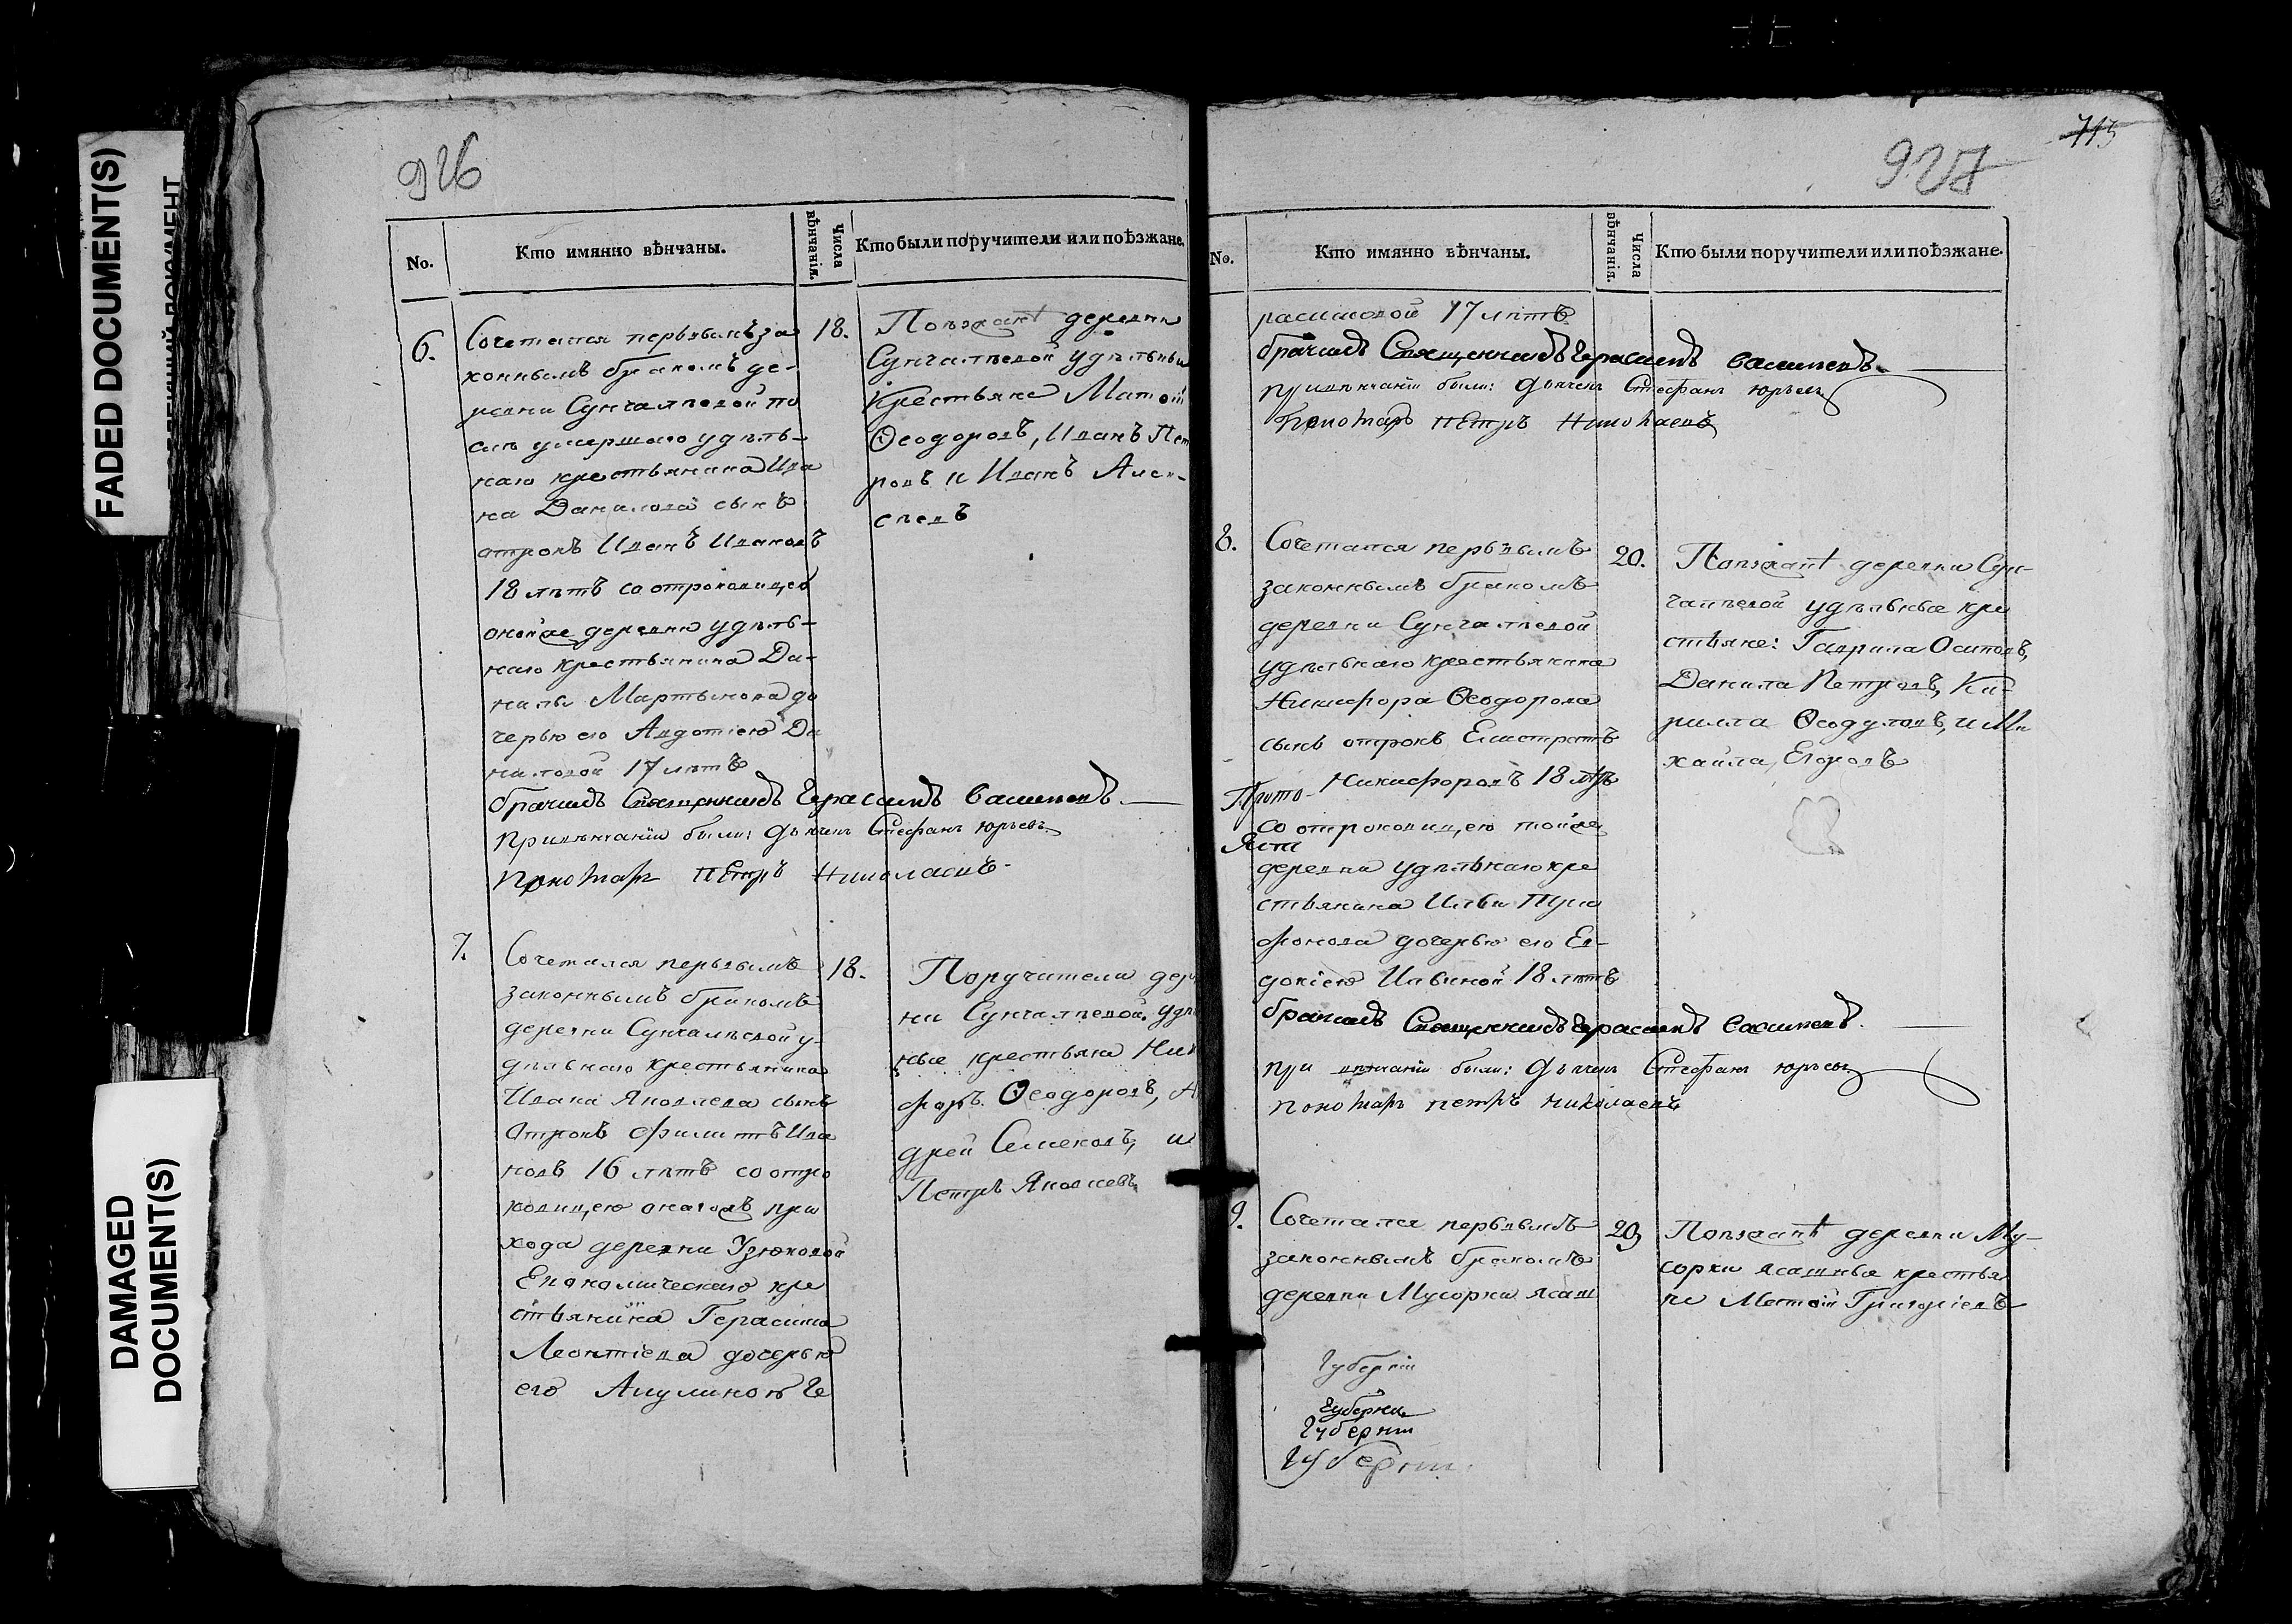 FADED DOCUMENT(S)
DAMAGED
DOCUMENT(S)
926
No.
Кто имянно вѣнчаны.
Числа вѣнчанія.
Кто были поручители или поѣзжане.
6.
Сочетался первымъ за
коннымъ бракомъ де-
ревни Сунчалѣевой по
слѣ умершаго удѣль-
наго крестьянина Ива
на Данилова сынъ
отрокъ Иванъ Ивановъ
18 лѣтъ со отроковицей
оной же деревни удѣль-
наго крестьянина Да-
нилы Мартынова до
черью его Авдотіею Да
ниловой 17 лѣтъ
18.
Поѣзжанѣ деревни
Сунчалѣевой удѣльны
Крестьяне Матөѣй
Ѳеодоровъ, Иванъ Пет
ровъ и Иванъ Але-
сѣевъ
бračилъ Священникъ Герасимъ Васильевъ.
При вѣнчаніи были: дьячекъ Стефанъ Юрьевъ
пономарь Петръ Николаевъ
7.
Сочетался первымъ
законнымъ бракомъ
деревни Сунчалѣевой у-
дѣльнаго крестьянина
Ивана Яковлева сынъ
отрокъ Филиппъ Ива
новъ 16 лѣтъ со отро
ковицею онагожъ при
хода деревни Узюковой
Економическаго кре
стьянина Герасима
Леонтіева дочерью
его Акулиною Ге
18.
Поручители дер
ни Сунчалѣевой удѣ
ные крестьяна Ник
форъ Ѳеодоровъ, А
дрей Семеновъ, и
Петръ Яковлевъ
927
No.
Кто имянно вѣнчаны.
Числа вѣнчанія.
Кто были поручители или поѣзжане.
расимовой 17 лѣтъ
брачилъ Священникъ Герасимъ Васильевъ.
при вѣнчаніи были: дьячекъ Стефанъ Юрьевъ
пономарь Петръ Николаевъ
8.
Сочетался первымъ
законнымъ бракомъ
деревни Сунчалѣевой
удѣльнаго крестьянина
Никифора Ѳеодорова
сынъ отрокъ Елистратъ
Никифоровъ 18 лѣтъ
со отроковицею той же
деревни удѣльнаго кре
стьянина Ильи Три
фонова дочерью его Ев-
докіею Ильиной 18 лѣтъ
20.
Поѣзжанѣ деревни Сун-
чалѣевой удѣльные кре
стьяне: Гаврила Осиповъ,
Данила Петровъ, Ки-
рилла Ѳеодуловъ, и Ми
хайла Егоровъ
брачилъ Священникъ Герасимъ Васильевъ.
при вѣнчаніи были: дьячекъ Стефанъ Юрьевъ
пономарь Петръ Николаевъ
9.
Сочетался первымъ
законнымъ бракомъ
деревни Мусорки ясаш
20
Поѣзжанѣ деревни Му-
сорки ясашные крестья
не Матөѣй Григорьевъ
Губерніи
Губерніи
Губерніи
Губерніи